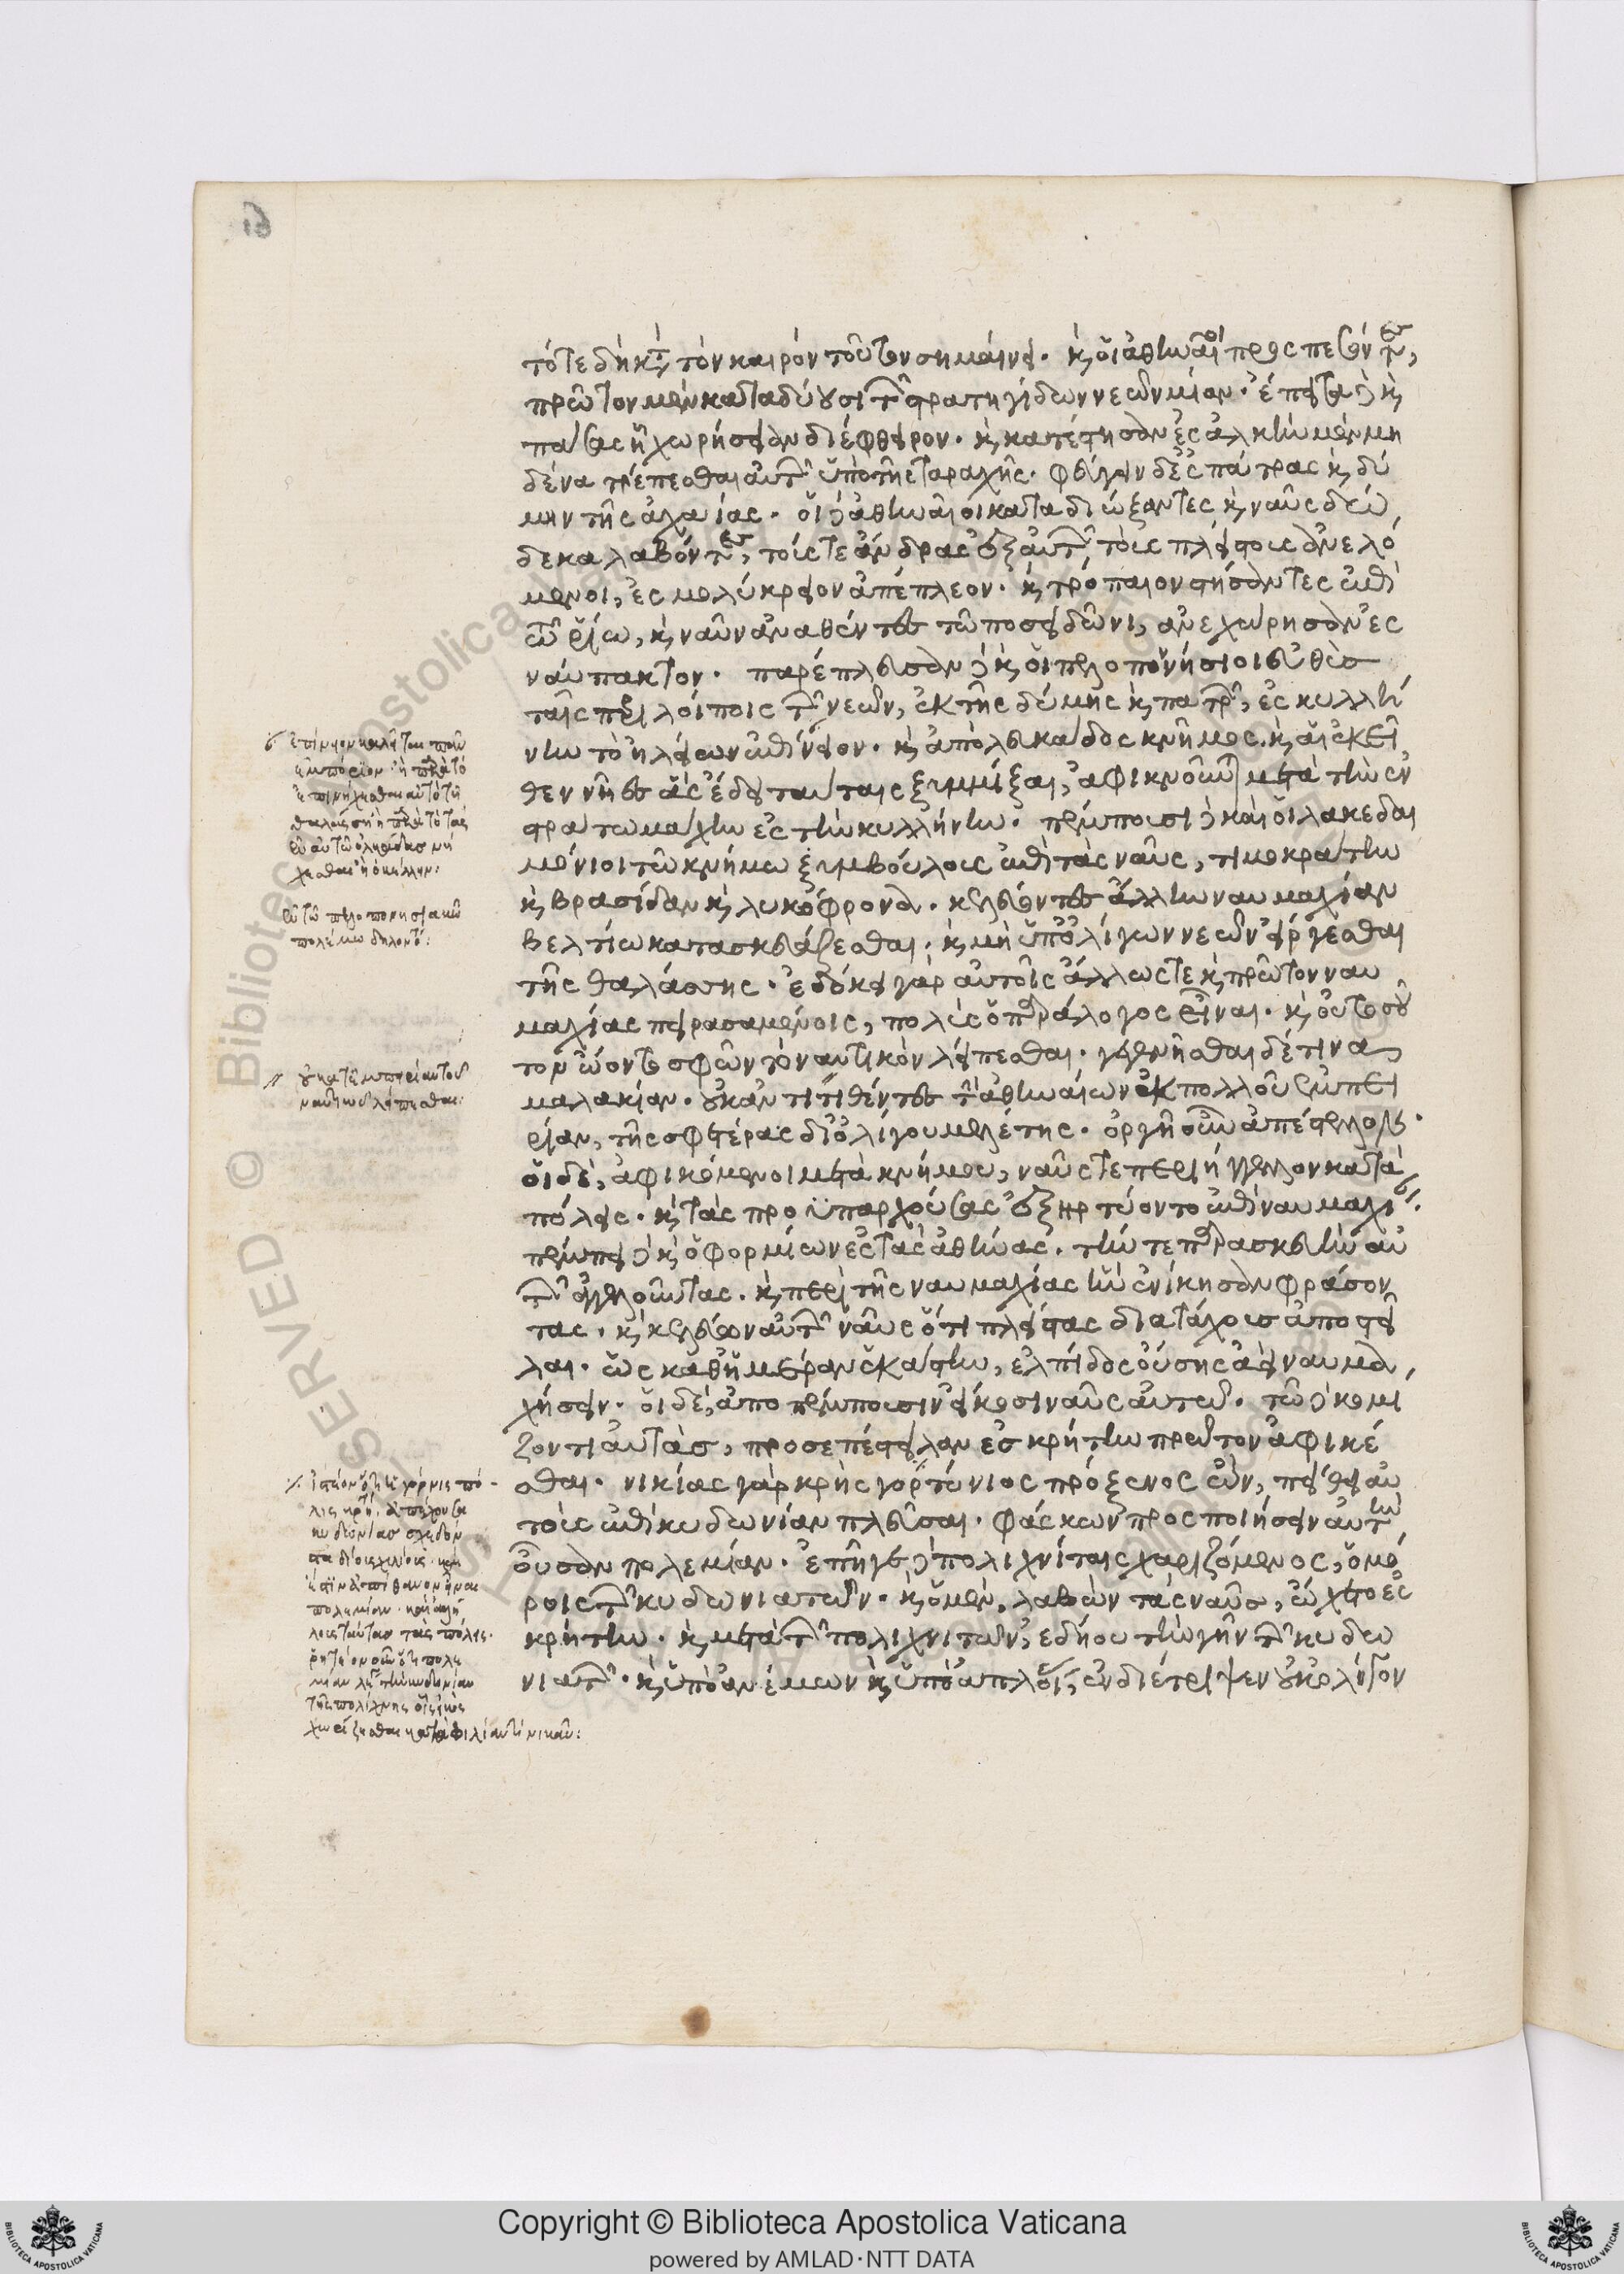 τότε δὴ κατὰ τὸν καιρὸν τοῦτον σημαίνει. καὶ οἱ ἀθηναῖοι προσπεσόντες,
πρῶτον μὲν καταδύουσι τῶν στρατηγίδων νεῶν μίαν. ἔπειτα δὲ καὶ
πάσας ἣ χωρήσειαν διέφθειρον. καὶ κατέστησαν ἐς ἀλκὴν μὲν μη
δένα τρέπεσθαι αὐτῶν ὑπὸ τῆς ταραχῆς. φεύγειν δὲ ἐς πάτρας καὶ δύ
μην τῆς ἀχαίας. οἱ δὲ ἀθηναῖοι καταδιώξαντες καὶ ναῦς δώ
δεκα λαβόντες, τούς τε ἄνδρας ἐξ αὐτῶν τοὺς πλείστους ἀνελό
μενοι, ἐς μολύκρειον ἀπέπλεον. καὶ τρόπαιον στήσαντες ἐπὶ
τῶ ῥίω, καὶ ναῦν ἀναθέντες τῶ ποσειδῶνι, ἀνεχώρησαν ἐς
ναύπακτον. παρέπλευσαν δὲ καὶ οἱ πελοπονήσιοι εὐθὺς
ταῖς περιλοίποις τῶν νεῶν, ἐκ τῆς δύμης καὶ πατρῶν, ἐς κυλλή
νην τὸ ἠλείων ἐπίνειον. καὶ ἀπὸ λευκάδος κνῆμος. καὶ αἱ ἐκεῖ
θεν νῆες ἃς ἔδει ταύταις ξυμμίξαι, ἀφικνοῦνται μετὰ τὴν ἐν
στράτω μάχην ἐς τὴν κυλλήνην. πέμπουσι δὲ καὶ οἱ λακεδαι
μόνιοι τῶ κνήμω ξυμβούλους ἐπὶ τὰς ναῦς, τιμοκράτην
καὶ βρασίδαν καὶ λυκόφρονα. κελεύοντες ἄλλην ναυμαχίαν
βελτίω κατασκευάζεσθαι. καὶ μὴ ὑπ' ὀλίγων νεῶν εἴργεσθαι
τῆς θαλάσσης. ἐδόκει γὰρ αὐτοῖς ἄλλως τε καὶ πρῶτον ναυ
μαχίας πειρασαμένοις, πολὺς ὁ παράλογος εἶναι. καὶ οὐ τοσού
τον ὤοντο σφῶν τὸ ναυτικὸν λείπεσθαι. γεγενῆσθαι δέ τινα
μαλακίαν. οὐκ ἀντιτιθέντες τὴν ἀθηναίων ἐκ πολλοῦ ἐμπει
ρίαν, τῆς σφετέρας δι' ὀλίγου μελέτης. ὀργῆ οὖν ἀπέστελλον.
οἱ δὲ, ἀφικόμενοι μετὰ κνήμου, ναῦς τε περιήγγελλον κατὰ
πόλεις. καὶ τὰς προϋπαρχούσας ἐξηρτύοντο ἐπὶ ναυμαχίαν.
πέμπει δὲ καὶ ὁ φορμίων ἐς τὰς ἀθήνας. τήν τε παρασκευὴν αὐ
τῶν ἀγγελοῦντας. καὶ περὶ τῆς ναυμαχίας ἣν ἐνίκησαν φράσον
τας. καὶ κελεύων αὐτῶν ναῦς ὅτι πλείστας διατάχους ἀποστεῖ
λαι. ὡς καθ' ἡμέραν ἑκάστην, ἐλπίδος οὔσης ἀεὶ ναυμα
χήσειν. οἱ δὲ, ἀποπέμπουσιν εἴκοσι ναῦς αὐτῶ. τῶ δὲ κομί
ζοντι αὐτὰς, προσεπέστειλαν ἐς κρήτην πρῶτον ἀφικέ
σθαι. νικίας γὰρ κρὴς γορτύνιος πρόξενος ὢν, πείθει αὐ
τοὺς ἐπὶ κυδωνίαν πλεῦσαι. φάσκων προσποιήσειν αὐτὴν
οὖσαν πολεμίαν. ἐπῆγε δὲ πολιχνίταις χαριζόμενος, ὁμό
ροις τῶν κυδωνιατῶν. καὶ ὁ μὲν, λαβὼν τὰς ναῦς, ὤχετο ἐς
κρήτην. καὶ μετὰ τῶν πολιχνιτῶν, ἐδήου τὴν γῆν τῶν κυδω
νιατῶν. καὶ ὑπὸ ἀνέμων καὶ ὑπὸ ἀπλοίας, ἐνδιέτριψεν οὐκ ὀλίγον
ἐπίνειον καλεῖται πᾶν
ἐμπόριον. ἢ παρὰ τὸ
ἐπινήχεσθαι αὐτὸ τῇ
θαλάσσῃ ἢ παρὰ τὸ τὰς
ἐν αὐτῶ ὁλκάδας νή
χεσθαι ἢ ὀκέλλειν:
ἐν τῶ πελοπονησιακῶ
πολέμω δηλονότι: